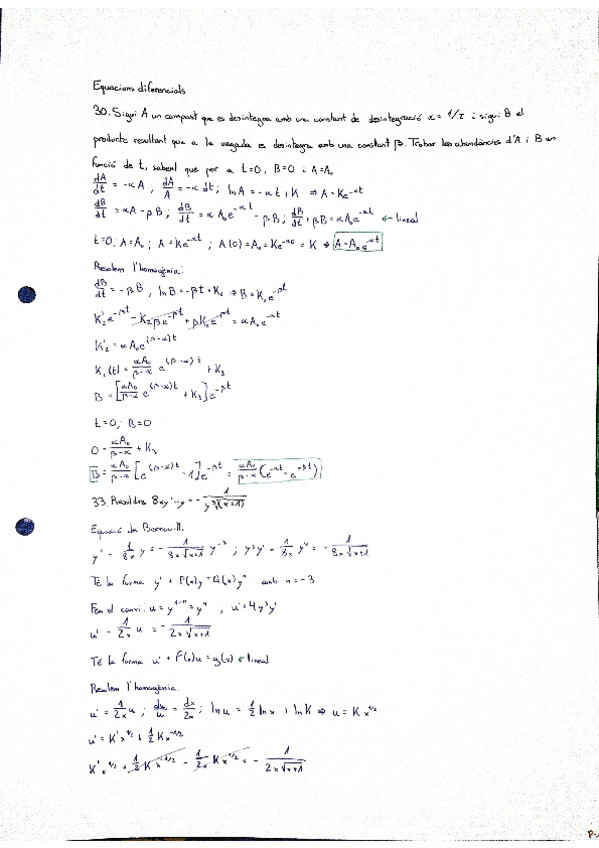 Equacions diferencials
30. Sigui A un compost que es desintegra amb una constant de desintegració α = 1/2 i sigui B el
producte resultant que a la vegada es desintegra amb una constant β. Trobar les abundàncies d'A i B en
funció de t, sabent que per a t=0, B=0 i A=A₀
dA/dt = -αA , dA/A = -α dt ; ln A = -αt + K ⇒ A = Ke^(-αt)
dB/dt = αA - βB ; dB/dt = αA₀e^(-αt) - βB ; dB/dt + βB = αA₀e^(-αt) ← lineal
t=0, A=A₀ ; A = Ke^(-αt) ; A(0) = A₀ = Ke^(-α0) = K ⇒ A = A₀e^(-αt)
Resolem l'homogènia:
dB/dt = -βB , ln B = -βt + K₂ ⇒ B = K₂e^(-βt)
K₂'e^(-βt) - K₂βe^(-βt) + βK₂e^(-βt) = αA₀e^(-αt)
K₂' = αA₀e^((β-α)t)
K₂(t) = αA₀/(β-α) e^((β-α)t) + K₃
B = [αA₀/(β-α) e^((β-α)t) + K₃]e^(-βt)
t=0; B=0
0 = αA₀/(β-α) + K₃
B = αA₀/(β-α) [e^((β-α)t) - 1]e^(-βt) = αA₀/(β-α) (e^(-αt) - e^(-βt))
33. Resoldre 8xy' - y = - 1/(y³√(x+1))
Equació de Bernouilli
y' - 1/8x y = - 1/(8x√(x+1)) y^(-3) ; y³y' - 1/8x y⁴ = - 1/(8x√(x+1))
Té la forma y' + P(x)y = Q(x)yⁿ amb n = -3
Fem el canvi: u = y^(1-n) = y⁴ , u' = 4y³y'
u' - 1/2x u = - 1/(2x√(x+1))
Té la forma u' + f(x)u = g(x) ← lineal
Resolem l'homogènia.
u' = 1/2x u ; du/u = dx/2x ; ln u = 1/2 ln x + ln K ⇒ u = K x^(1/2)
u' = K'x^(1/2) + 1/2 Kx^(-1/2)
K'x^(1/2) + 1/2 K x^(-1/2) - 1/2x Kx^(1/2) = - 1/(2x√(x+1))